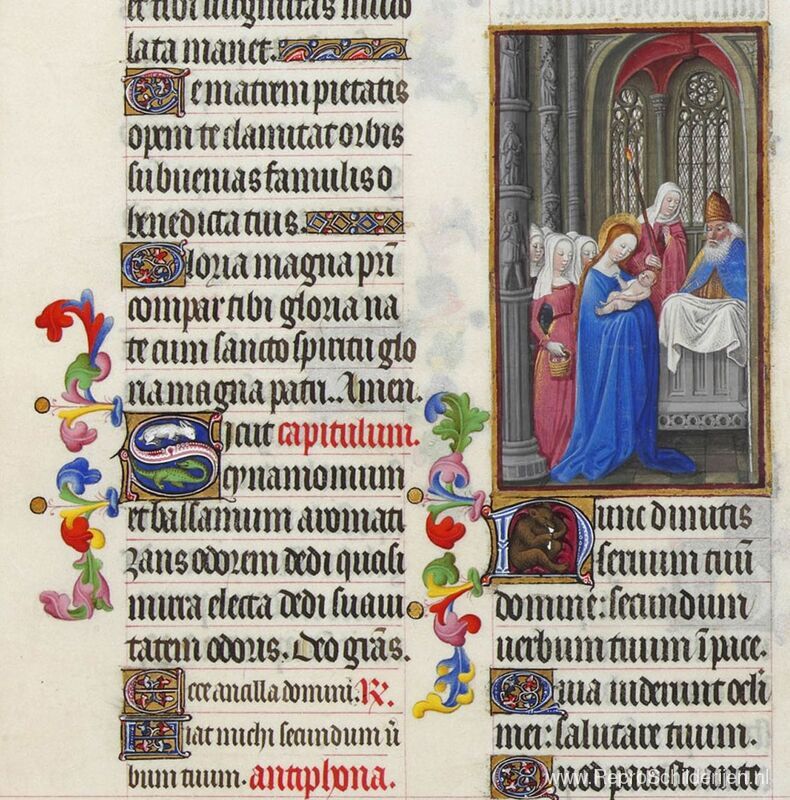 et tibi
lata manet.
Te matrem pietatis
opem te clamitat orbis
subuenias famulis o
benedicta tuis.
Gloria magna pr̄i
compar tibi gloria na
te cum sancto spiritu glo
ria magna patri. Amen.
Sicut capitulum.
cynamomum
et balsamum aromati
zans odorem dedi quasi
mirra electa dedi suaui
tatem odoris. Deo grās.
Ecce ancilla domini. R̵.
Fiat michi secundum ū
bum tuum. antiphona.
Nunc dimitis
seruum tuū
domine: secundum
uerbum tuum ī pace.
Quia uiderunt oculi
mei: salutare tuum.
Quod parasti ante
www.ReproSchilderijen.nl